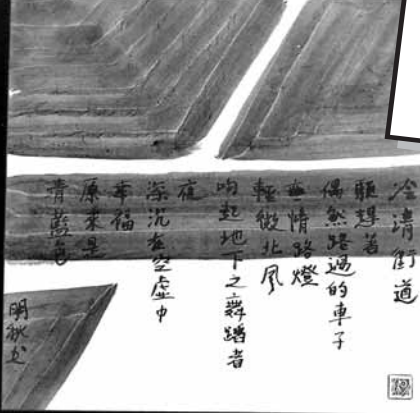 冷清街道
驅趕著
偶然路過的車子
無情路燈
輕微北風
吹起地下之舞蹈者
夜
深沉在空虛中
幸福
原來是
青藍色